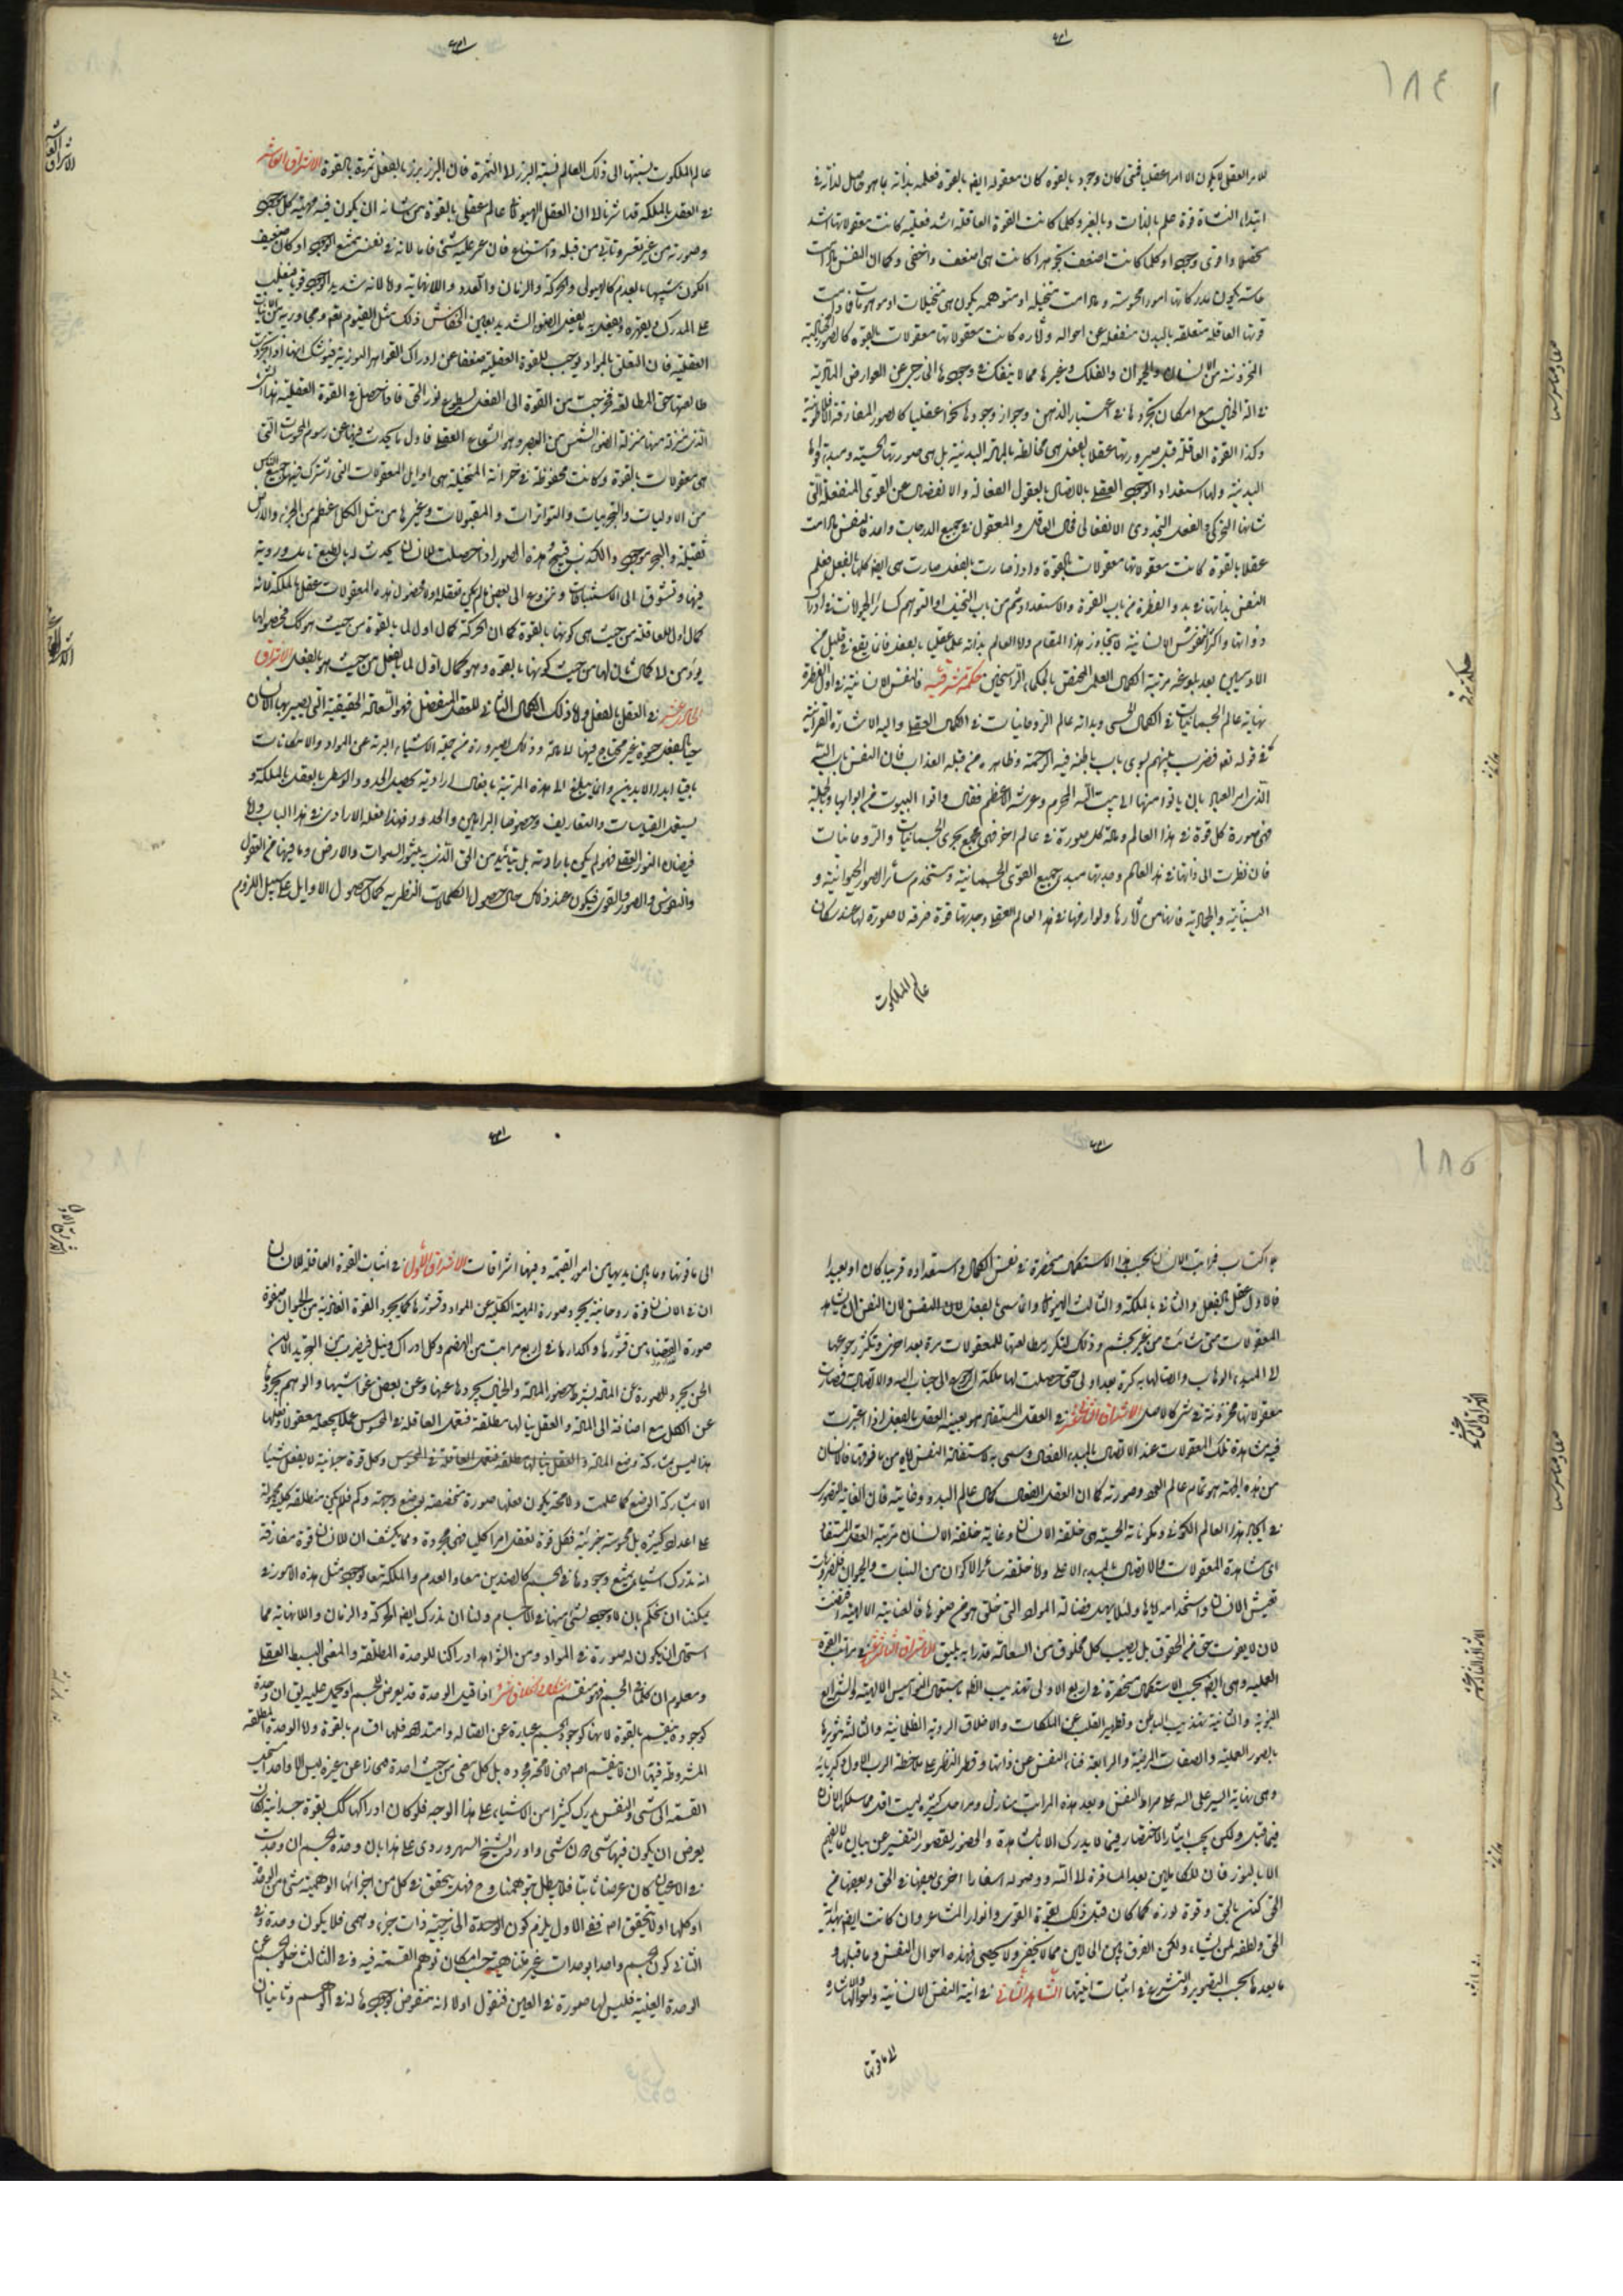 ١٨٤
للامر العقلي لا يكون الا امرا عقليا فمتى كان وجوده بالقوة كان معقوله ايضا بالقوة فعلمه بذاته
ابتداء النشأة قوة علم بالذات وبالغير وكلما كانت القوة العاقلة اشد فعلية كانت معقولاتها اشد
تحصلا واقوى وجودا وكلما كانت اضعف تجوهرا كانت هى اضعف واخفى وكما ان النفس مادامت
حاسة يكون مدركاتها امورا محسوسة ومادامت متخيلة او متوهمة يكون هى متخيلات او موهومات فمادامت
قوتها العاقلة متعلقة بالبدن منفعلة عن احواله وآثاره كانت معقولاتها معقولات بالقوة كالصور الخيالية
المخزونة من الانسان والحيوان والفلك وغيرها مما لا ينفك فى وجودها الخارجى عن العوارض المادية
فى الخيال مع امكان تجردها فى اعتبار الذهن وجواز وجودها نحوا عقليا كالصور المفارقة الافلاطونية
وكذا القوة العاقلة قبل صيرورتها عقلا بالفعل هى مخالطة بالمادة البدنية بل هى صورتها الحسية ومبدء قواها
البدنية ولها استعداد الوجود العقلى بالاتصال بالعقول الفعالة والانفصال عن القوى المنفعلة التى
شانها التحرك والفعل التجددى الانفعالى فحال العاقل والمعقول فى جميع الدرجات واحد فالنفس مادامت
عقلا بالقوة كانت معقولاتها معقولات بالقوة واذا صارت بالفعل صارت هى ايضا كلها بالفعل فعلم
النفس بذاتها فى بدو الفطرة من باب القوة والاستعداد ثم من باب التخيل او التوهم كسائر الحيوانات فى ادراك
ذواتها واكثر النفوس الانسانية لا يتجاوز هذا المقام ولا العالم بذاته علما عقليا بالفعل فانما يقع فى قليل من
الادميين بعد بلوغه مرتبة الكمال العلمى المختص بالحكماء الراسخين حكمة مشرقية فالنفس الانسانية فى اول الفطرة
نهاية عالم الجسمانيات فى الكمال الحسى وبداية عالم الروحانيات فى الكمال العقلى واليه الاشارة القرآنية
فى قوله تعه فضرب بينهم بسور له باب باطنه فيه الرحمة وظاهره من قبله العذاب فان النفس باب الله
الذى امر العباد بان ياتوا منها الى بيت الله المحرم وعرشه الاعظم فقال واتوا البيوت من ابوابها وبالجملة
فهى صورة كل قوة فى هذا العالم ومادة كل صورة فى عالم اخر فهى مجمع بحرى الجسمانيات والروحانيات
فان نظرت الى ذاتها فى هذا العالم وجدتها مبدء جميع القوى الجسمانية ومستخدم سائر الصور الحيوانية و
النباتية والجمادية فانها من آثارها ولوازمها فى هذا العالم العقلى وجدتها قوة صرفة لا صورة لها عند سكان
عالم الملكوت
حكمة مشرقية
عالم الملكوت نسبتها الى ذلك العالم نسبة البزر الى الثمرة فان البزر بزر بالفعل ثمرة بالقوة الاشراق العاشر
فى العقل بالملكة قد اشرنا الا ان العقل الهيولانى عالم عقلى بالقوة من شانه ان يكون فيه مهية كل موجود
وصورته من غير تعسر وتأب من قبله وامتناع فان عسر عليه شئ فاما لانه فى نفسه ممتنع الوجود او كان ضعيف
الكون شبيها بالعدم كالهيولى والحركة والزمان والعدد واللانهاية واما لانه شديد الوجود قويا فيغلب
على المدرك ويقهره ويفعل به ما يفعل الضوء الشديد بعين الخفاش وذلك مثل القيوم تعه ومجاوريه من الانيات
العقلية فان التعلق بالمواد يوجب للقوة العقلية ضعفا عن ادراك القواهر النورية
طالعتها حق المطالعة فخرجت من القوة الى الفعل بسطوع نور الحق فاذا حصل فى القوة العقلية هذا الشئ
الذى منزلته منها منزلة الضوء الشمسى من البصر وهو الشعاع العقلى فاول ما يحدث فيها عن رسوم المحسوسات التى
هى معقولات بالقوة وكانت محفوظة فى خزانة المتخيلة هى اوايل المعقولات التى اشترك فيها جميع الناس
من الاوليات والتجربيات والمتواترات والمقبولات وغيرها من مثل الكل اعظم من الجزء والارض
ثقيلة والبحر موجود والكذب قبيح وهذه الصور اذا حصلت للانسان يحدث له بالطبع تامل وروية
فيها وتشوق الى الاستنباطات ونزوع الى بعض ما لم يكن تعقله اولا فحصول هذه المعقولات عقل بالملكة لانه
كمال اول للعاقلة من حيث هى كونها بالقوة كما ان الحركة كمال اول لما بالقوة من حيث هو كذلك فحصولها
يؤدى الى كمال ثان لها من حيث كونها بالقوة وهو كمال اول لما بالفعل من حيث هو بالفعل الاشراق
الحادى عشر فى العقل بالفعل ولا ذلك الكمال الثانى للعقل المنفعل فهو السعادة الحقيقية التى يصير بها الانسان
حيا بالفعل حيوة غير محتاج فيها الى مادة وذلك لصيرورته من جملة الاشياء البرية عن المواد والامكانات
باقيا ابد الابدين وانما يبلغ الى هذه المرتبة بافعال ارادية كصيد الحدود والوسطى بالعقل بالملكة و
يستعمل القياسات والتعاريف وخصوصا البراهين والحدود فهذا فعله الارادى فى هذا الباب واما
فيضان النور العقلى فهو لم يكن بارادته بل بتأييد من الحق الذى به يتنور السموات والارض وما فيها من العقول
والنفوس والصور والقوى فيكون عند ذلك حال حصول الكمالات النظرية كحال حصول الاوايل على سبيل اللزوم
١٨٥
بلا اكتساب فمراتب الانسان بحسب هذا الاستكمال منحصرة فى نفس الكمال واستعداده قريبا كان او بعيدا
فالاول عقل بالفعل والثانى بالملكة والثالث الهيولانى وانما سمى بالفعل لان للنفس الانسان ان يشاهد
المعقولات متى شائت من غير تجشم وذلك لتكرر مطالعتها للمعقولات مرة بعد اخرى وتكثر رجوعها
الى المبدء الوهاب واتصالها به كرة بعد اولى حتى حصلت لها ملكة الرجوع الى جناب الله والاتصال به فصارت
معقولاتها مخزونة فى شئ كالاصل الاشراق الثانى عشر فى العقل المستفاد هو بعينه العقل بالفعل اذا اعتبرت
فيه مشاهدة تلك المعقولات عند الاتصال بالمبدء الفعال وسمى به لاستفادة النفس اياه من ما فوقها فالانسان
من هذه الجهة هو تمام عالم العود وصورته كما ان العقل الفعال كمال عالم البدو وغايته فان الغاية القصوى
فى ايجاد هذا العالم الكونى ومكوناته الحسية هى خلقة الانسان وغاية خلقة الانسان مرتبة العقل المستفاد
اى مشاهدة المعقولات والاتصال بالمبدء الاعلى واما خلقة سائر الاكوان من النبات والحيوان فلضرورات
تعيش الانسان واستخدامه اياها ولئلا يهمل فضالة المواد التى خلق هو من صفوها فالعناية الالهية اقتضت
لان لا يفوت حق من الحقوق بل يصيب كل مخلوق من السعادة قدرا به يليق الاشراق الثالث عشر فى مراتب القوة
العملية وهى ايضا بحسب الاستكمال منحصرة فى اربع الاولى تهذيب الظاهر باستعمال النواميس الالهية والشرائع
النبوية والثانية تهذيب الباطن وتطهير القلب عن الملكات والاخلاق الردية الظلمانية والثالثة تنويرها
بالصور العلمية والصفات المرضية والرابعة فناء النفس عن ذاتها وقصر النظر على ملاحظة الرب الاول وكبريائه
وهى نهاية السير الى الله على صراط النفس وبعد هذه المراتب منازل ومراحل كثيرة ليست اقل مما سلكها الانسان
فيما قبل ولكن يجب ايثار الاختصار فيما لا يدرك الا بالمشاهدة والحضور لقصور التعبير عن بيان ما لا يفهم
الا بالنور فان للكاملين بعد المسافرة الى الله ووصوله اسفارا اخرى بعضها فى الحق وبعضها من
الحق لكن بالحق وقوة نوره كما كان قبل ذلك بقوة القوى وانوار المشاعر وان كانت ايضا بهداية
الحق ولطفه لمن يشاء ولكن الفرق بين الحالين مما لا ينحصر ولا يحصى فهذه احوال النفس وما قبلها و
ما بعدها بحسب التصوير والتشريح فى اثبات انيتها الشاهد الثانى فى انية النفس الانسانية واحوالها
الى ما فوقها
الى ما فوقها وما بين يديها من امور القيمة وفيها اشراقات الاشراق الاول فى اثبات القوة العاقلة للانسان
ان فى الانسان قوة روحانية يجرد صورة المهية الكلية عن المواد وقشورها كما يجرد القوة الغاذية من الحيوان صفوة
صورة الغذاء من قشورها واكدارها فى اربع مراتب من الهضم وكل ادراك ونيل فبضرب من التجريد الا ان
الحس يجرد الصورة عن المادة بشرط حضور المادة والخيال يجردها عنها وعن بعض غواشيها والوهم يجردها
عن الكل مع اضافة الى المادة والعقل ينالها مطلقة ففعل العاقلة فى المحسوس عملا يجعله معقولا وفعلها
هذا ليس بمشاركة وضع المادة والعقل ينالها مطلقة ففعل العاقلة فى المحسوس وكل قوة جسمانية لا يفعل شيئا
الا بمشاركة الوضع كما علمت ولا محالة يكون فعلها صورة منخفضة بوضع وجهة وكم فلم يكن مطلقة كلية محمولة
على اعداد كثيرة بل محسوسة جزئية فكل قوة تعقل امرا كليا فهى مجردة ومما يكشف ان للانسان قوة مفارقة
انه تدرك اشياء يمتنع وجودها فى الجسم كالضدين معا والعدم والملكة معا كوجود مثل هذه الامور فى
يمكننا ان نحكم بان لا وجود لشئ منها فى الاجسام ولنا ان ندرك ايضا الحركة والزمان واللانهاية مما
استحال ان يكون له صورة فى المواد ومن الشواهد ادراكنا للوحدة المطلقة والمعنى البسيط العقلى
ومعلوم ان كل فى الجسم فهو منقسم اذا قيد الوحدة قد يعرض للجسم او يحمل عليه يق ان وحدة
كوجوده ينقسم بالقوة لانها كوجود الجسم عبارة عن اتصاله وامتداده فلها اقسام بالقوة واما الوحدة المطلقة
المشروطة فيها ان لا ينقسم اصلا فهى لا محالة مجردة بل كل معنى من حيث
القسمة الى شئ والنفس يدرك كثيرا من الاشياء على هذا الوجه فلو كان ادراكها كك بقوة جسدانية لكان
يعرض ان يكون فيها شئ دون شئ واورد الشيخ السهروردى على هذا بان وحدة الجسم ان وجدت
فى الاعيان كان عرضا ثابتا فلا يبطل بتوهمنا وح فهل يتحقق فى كل من اجزائها الوهمية شئ من الوحدة
او كلها او لا يتحقق اصلا ففى الاول يلزم كون الوحدة الخارجية ذات جزء وهمى فلا يكون وحدة وفى
الثانى كون الجسم واحدا بوحدات غير متناهية حسب امكان توهم القسمة فيه وفى الثالث خلو الجسم عن
الوحدة العينية فليس لها صورة فى العين فنقول اولا انه منقوض بوجود ما له فى الوهم وثانيا ان